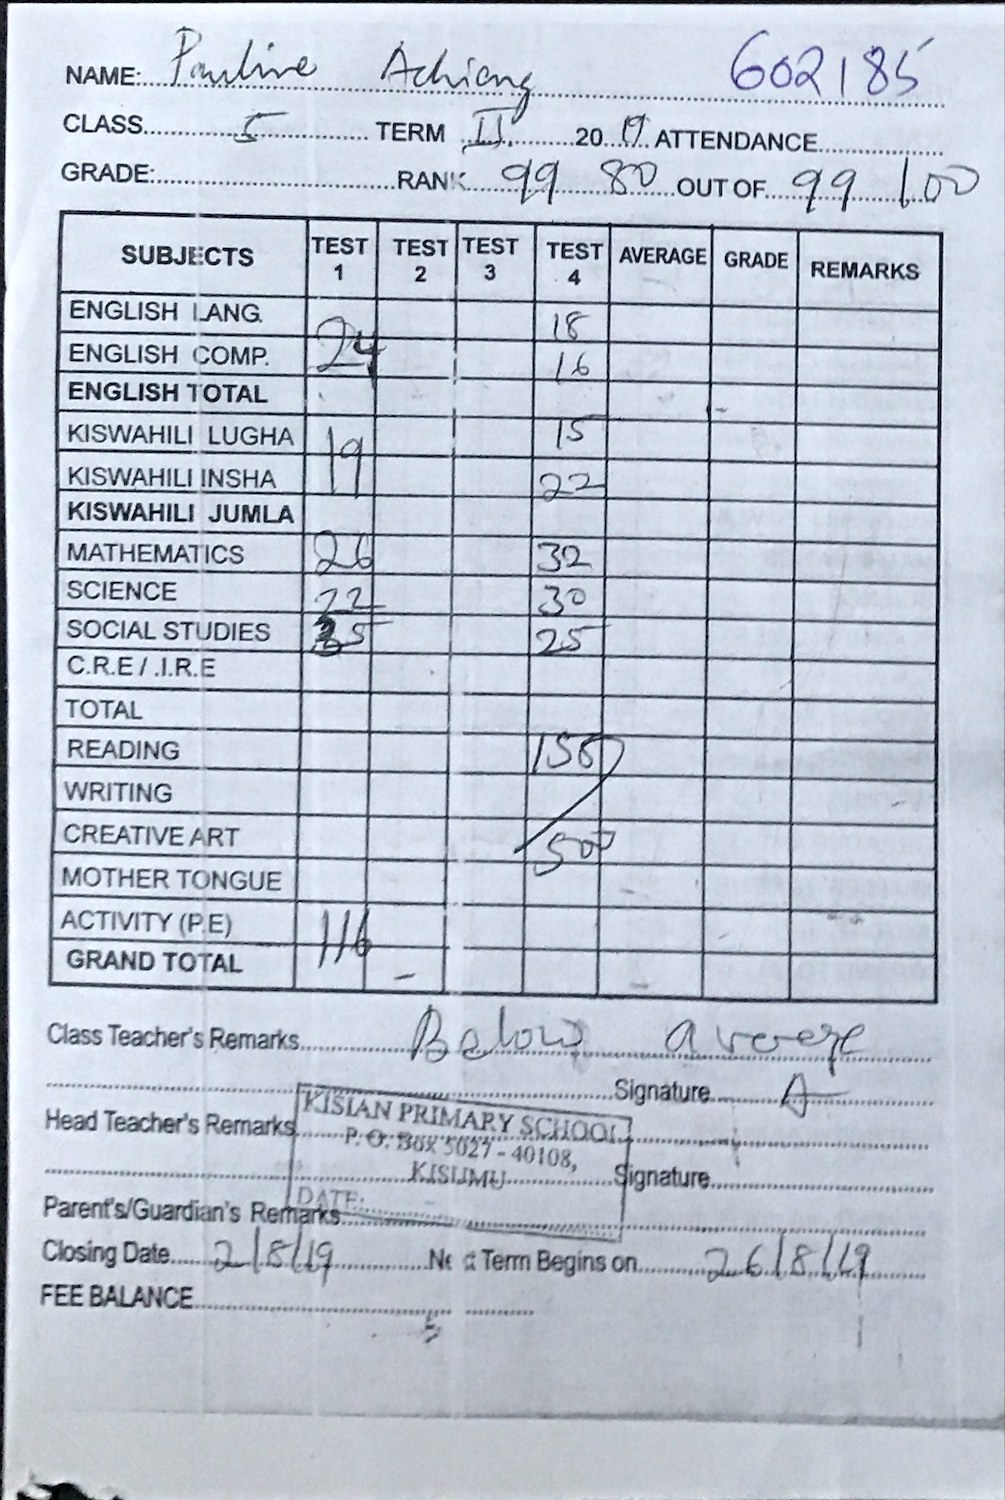 NAME: Pauline Achieng 602185
CLASS 5 TERM II 2019 ATTENDANCE
GRADE: RANK 99 80 OUT OF 99 100
SUBJECTS TEST 1 TEST 2 TEST 3 TEST 4 AVERAGE GRADE REMARKS
ENGLISH LANG. 18
ENGLISH COMP. 24 16
ENGLISH TOTAL
KISWAHILI LUGHA 15
KISWAHILI INSHA 19 22
KISWAHILI JUMLA
MATHEMATICS 26 32
SCIENCE 22 30
SOCIAL STUDIES 25 25
C.R.E / .I.R.E
TOTAL
READING 158
WRITING
CREATIVE ART 500
MOTHER TONGUE
ACTIVITY (P.E) 116
GRAND TOTAL
Class Teacher's Remarks Below average
Signature
Head Teacher's Remarks
KISIAN PRIMARY SCHOOL
P. O. Box 5027 - 40108,
KISUMU
DATE:
Signature
Parent's/Guardian's Remarks
Closing Date 2/8/19 Next Term Begins on 26/8/19
FEE BALANCE